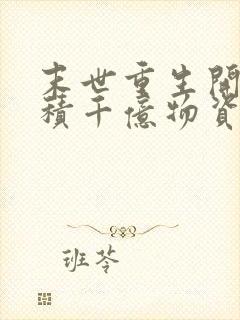 末世重生開
積千億物資
班苓